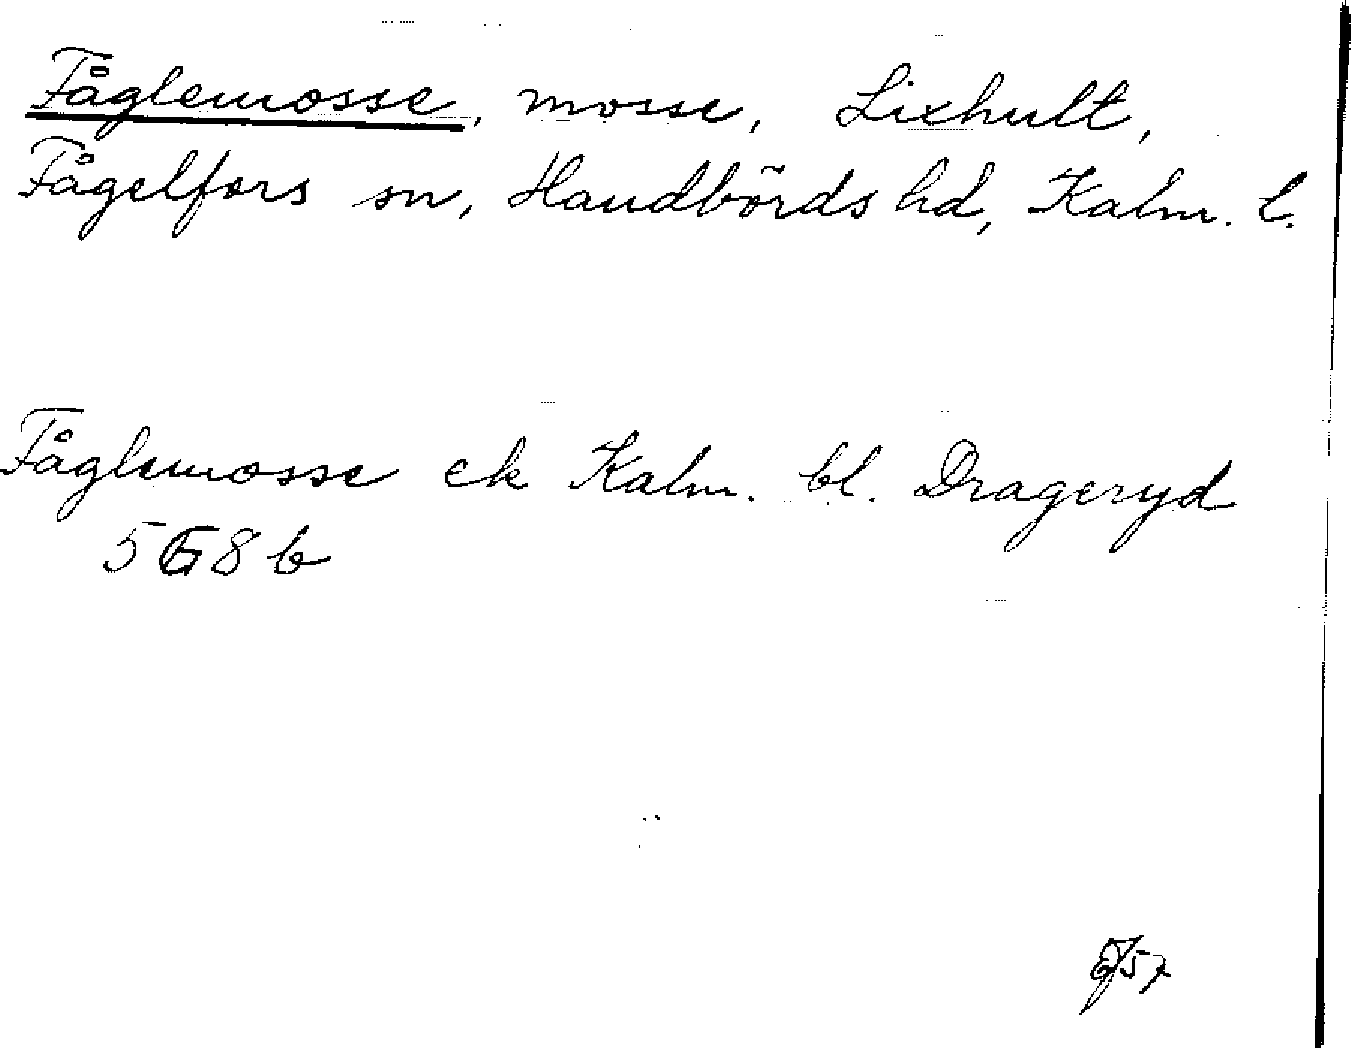 Fåglemosse, mosse, Lixhult,
Fågelfors sn, Handbörds hd, Kalm. l.
Fåglemosse ek Kalm. bl. Drageryd
5G8b